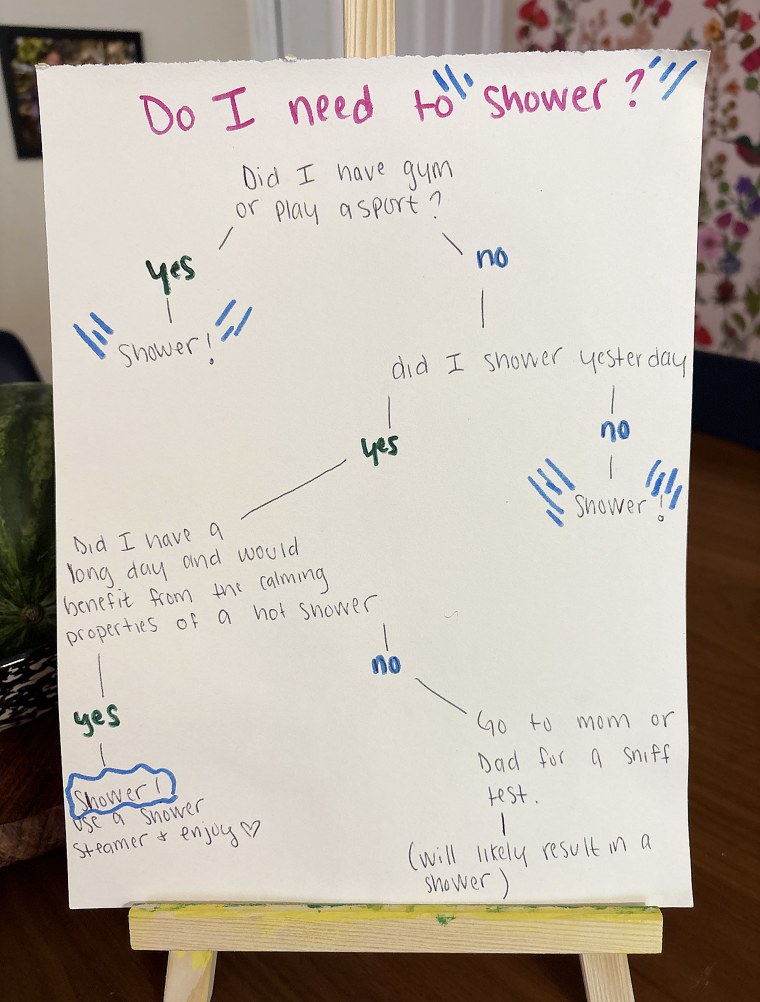 Do I need to shower?
Did I have gym
or play a sport?
yes
no
Shower!
did I shower yesterday
yes
no
Shower!
Did I have a
long day and would
benefit from the calming
properties of a hot shower
yes
no
Shower!
use a shower
steamer & enjoy ♡
Go to mom or
Dad for a sniff
test.
(will likely result in a
shower)